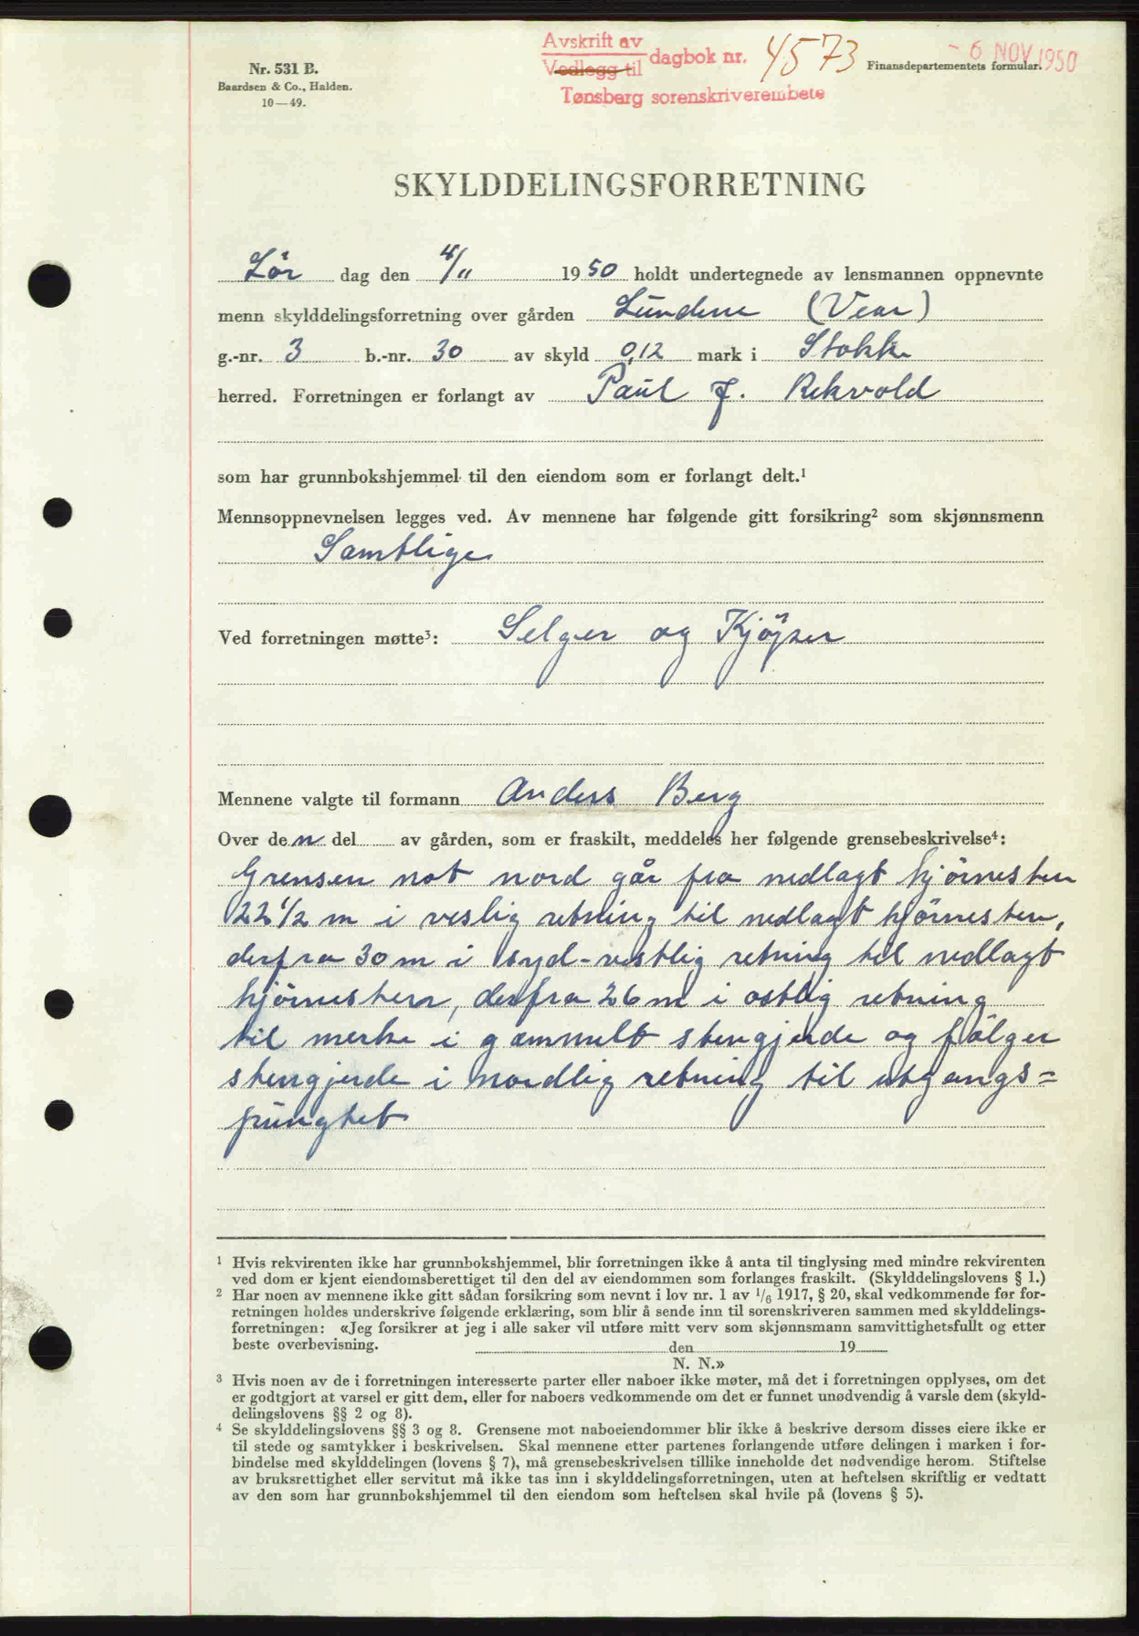 Avskrift av
Vedlegg til dagbok nr. 4573
Tønsberg sorenskriverembete
- 6 NOV 1950
Nr. 531 B.
Baardsen & Co., Halden.
10—49.
Finansdepartementets formular.
SKYLDDELINGSFORRETNING
Lör dag den 4/11 1950 holdt undertegnede av lensmannen oppnevnte
menn skylddelingsforretning over gården Lundene (Vear)
g.-nr. 3 b.-nr. 30 av skyld 0,12 mark i Stokke
herred. Forretningen er forlangt av Paul J. Rekvold
som har grunnbokshjemmel til den eiendom som er forlangt delt.¹
Mennsoppnevnelsen legges ved. Av mennene har følgende gitt forsikring² som skjønnsmenn
Samtlige
Ved forretningen møtte³: Selger og Kjöper
Mennene valgte til formann Anders Berg
Over den del av gården, som er fraskilt, meddeles her følgende grensebeskrivelse⁴:
Grensen mot nord går fra nedlagt hjörnesten
22 1/2 m i veslig retning til nedlagt hjörnesten,
derfra 30 m i syd-vestlig retning til nedlagt
hjörnesten, derfra 26 m i östlig retning
til merke i gammelt stengjerde og fölger
stengjerde i nordlig retning til utgangs=
punghet
¹ Hvis rekvirenten ikke har grunnbokshjemmel, blir forretningen ikke å anta til tinglysing med mindre rekvirenten
ved dom er kjent eiendomsberettiget til den del av eiendommen som forlanges fraskilt. (Skylddelingslovens § 1.)
² Har noen av mennene ikke gitt sådan forsikring som nevnt i lov nr. 1 av 1/6 1917, § 20, skal vedkommende før for-
retningen holdes underskrive følgende erklæring, som blir å sende inn til sorenskriveren sammen med skylddelings-
forretningen: «Jeg forsikrer at jeg i alle saker vil utføre mitt verv som skjønnsmann samvittighetsfullt og etter
beste overbevisning. den 19
N. N.»
³ Hvis noen av de i forretningen interesserte parter eller naboer ikke møter, må det i forretningen opplyses, om det
er godtgjort at varsel er gitt dem, eller for naboers vedkommende om det er funnet unødvendig å varsle dem (skyld-
delingslovens §§ 2 og 8).
⁴ Se skylddelingslovens §§ 3 og 8. Grensene mot naboeiendommer blir ikke å beskrive dersom disses eiere ikke er
til stede og samtykker i beskrivelsen. Skal mennene etter partenes forlangende utføre delingen i marken i for-
bindelse med skylddelingen (lovens § 7), må grensebeskrivelsen tillike inneholde det nødvendige herom. Stiftelse
av bruksrettighet eller servitut må ikke tas inn i skylddelingsforretningen, uten at heftelsen skriftlig er vedtatt
av den som har grunnbokshjemmel til den eiendom som heftelsen skal hvile på (lovens § 5).